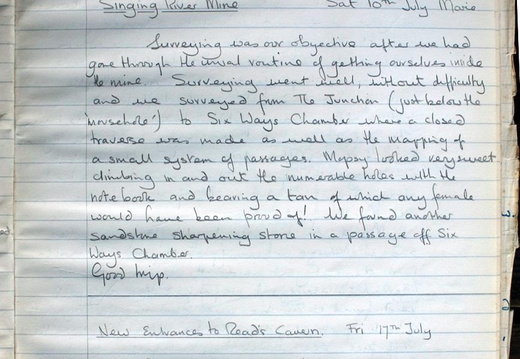 Singing River Mine Sat 10th July Marie
Surveying was our objective after we had
gone through the usual routine of getting ourselves inside
the mine. Surveying went well, without difficulty
and we surveyed from The Junction (just below the
'mousehole') to Six Ways Chamber where a closed
traverse was made as well as the mapping of
a small system of passages. Mopsy looked very sweet
climbing in and out the numerable holes with the
note book and bearing a tan of which any female
would have been proud of! We found another
sandstone sharpening stone in a passage off Six
Ways Chamber.
Good trip.
New Entrances to Read's Cavern. Fri 17th July